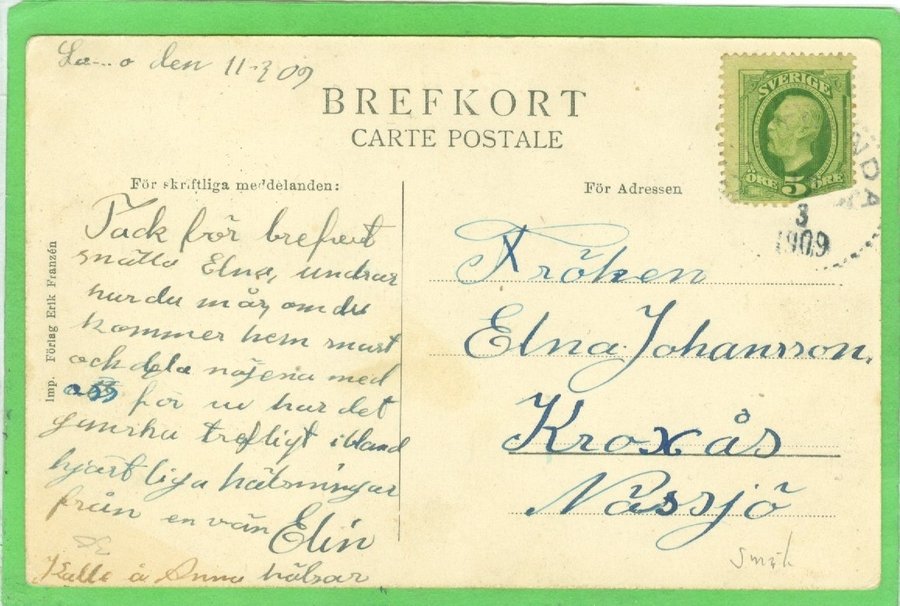 den 11-3 09
BREFKORT
CARTE POSTALE
För skriftliga meddelanden:
För Adressen
SVERIGE
ÖRE 5 ÖRE
NDA
3
1909
Imp. Förlag Erik Franzén
Tack för brefvet
snälla Elna, undrar
hur du mår, om du
kommer hem snart
och dela nöjena med
oss för vi har det
ganska trefligt ibland
hjärtliga hälsningar
från en vän Elin
Kalle å Anna hälsar
Fröken
Elna Johansson.
Kroxås
Nässjö
Små